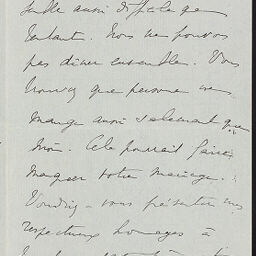 semble aussi difficile que
l'autre. Nous ne pouvons
pas dîner ensemble. Vous
trouvez que personne ne
mange aussi salement que
moi. Cela pourrait faire
manquer votre mariage.
Voudriez-vous présenter mes
respectueux hommages à